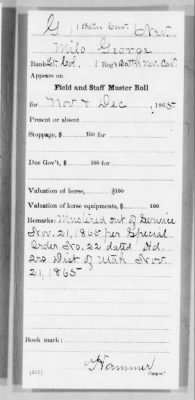 G 1 Batn Cav. Nev.
Milo George
Rank Lt. Col. 1 Reg't Batn Nev. Cav.
Appears on
Field and Staff Muster Roll
for Nov & Dec, 1865
Present or absent
Stoppage, $ 100 for
Due Gov't, $ 100 for
Valuation of horse, $ 100
Valuation of horse equipments, $ 100
Remarks: Mustered out of Service
Nov. 21, 1865 per Special
Order No. 22 dated Hd.
Dist of Utah Nov.
21, 1865
Book mark:
Hammer
Copyist.